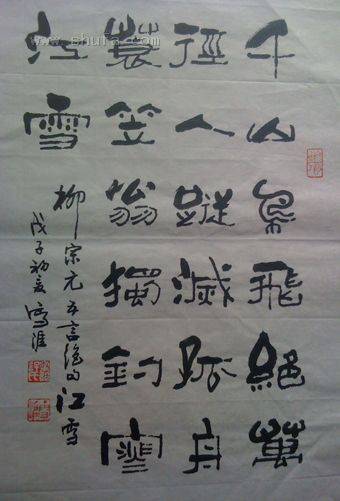 千山鳥飛絕萬
徑人蹤滅孤舟
蓑笠翁獨釣寒
江雪
柳宗元五言絕句江雪
戊子初夏